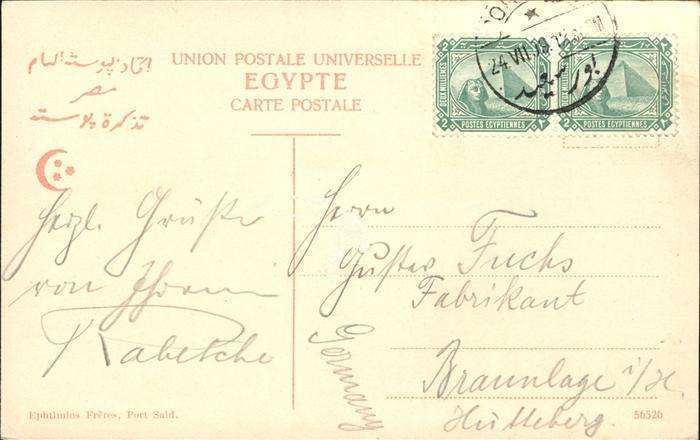 اتحاد پوسته العام
مصر
تذكرة پوسته
UNION POSTALE UNIVERSELLE
EGYPTE
CARTE POSTALE
DEUX MILLIEMES
2
POSTES EGYPTIENNES
2
POSTES EGYPTIENNES
24 VII
بور سعيد
Herzl. Grüße
von Ihrem
Rabetche
Herrn
Gustav Fuchs
Fabrikant
Braunlage i/H.
Hütteberg.
Germany
Ephtimios Frères, Port Said.
56526